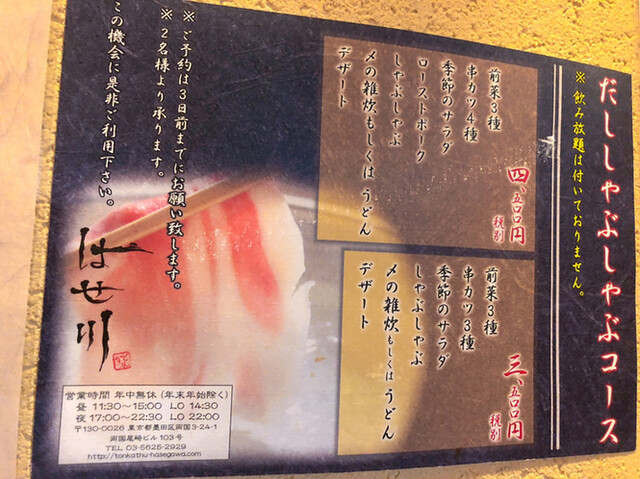 だししゃぶしゃぶコース
※飲み放題は付いておりません。
四、五〇〇円
税別
前菜3種
串カツ4種
季節のサラダ
ローストポーク
しゃぶしゃぶ
〆の雑炊もしくはうどん
デザート
三、五〇〇円
税別
前菜3種
串カツ3種
季節のサラダ
しゃぶしゃぶ
〆の雑炊もしくはうどん
デザート
※ご予約は3日前までにお願い致します。
※2名様より承ります。
この機会に是非ご利用下さい。
はせ川
営業時間 年中無休(年末年始除く)
昼 11:30~15:00 LO 14:30
夜 17:00~22:30 LO 22:00
〒130-0026 東京都墨田区両国3-24-1
両国尾崎ビル103号
TEL 03-5625-2929
http://tonkathu-hasegawa.com